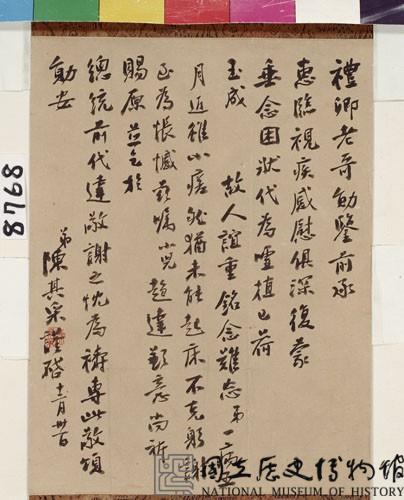 禮卿老哥勛鑒前承
惠臨視疾感慰俱深復蒙
垂念困狀代為噓植已荷
玉成 故人誼重銘念難忘弟一病
月近雖小瘥然猶未能起床不克躬謝
正為悵憾茲囑小兒趨達歉意尚祈
賜原並乞於
總統前代達敬謝之忱為禱專此敬頌
勛安
弟陳其采謹啓 十二月卅日
8768
國立歷史博物館
NATIONAL MUSEUM OF HISTORY